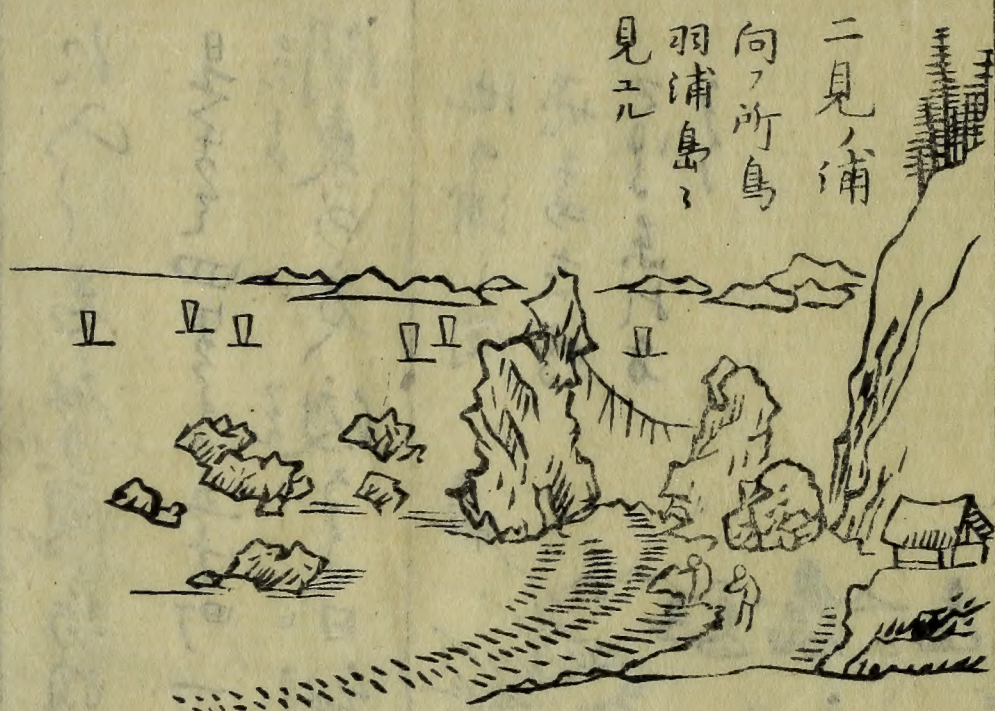 二見ノ浦
向フ所鳥
羽浦島〻
見エル